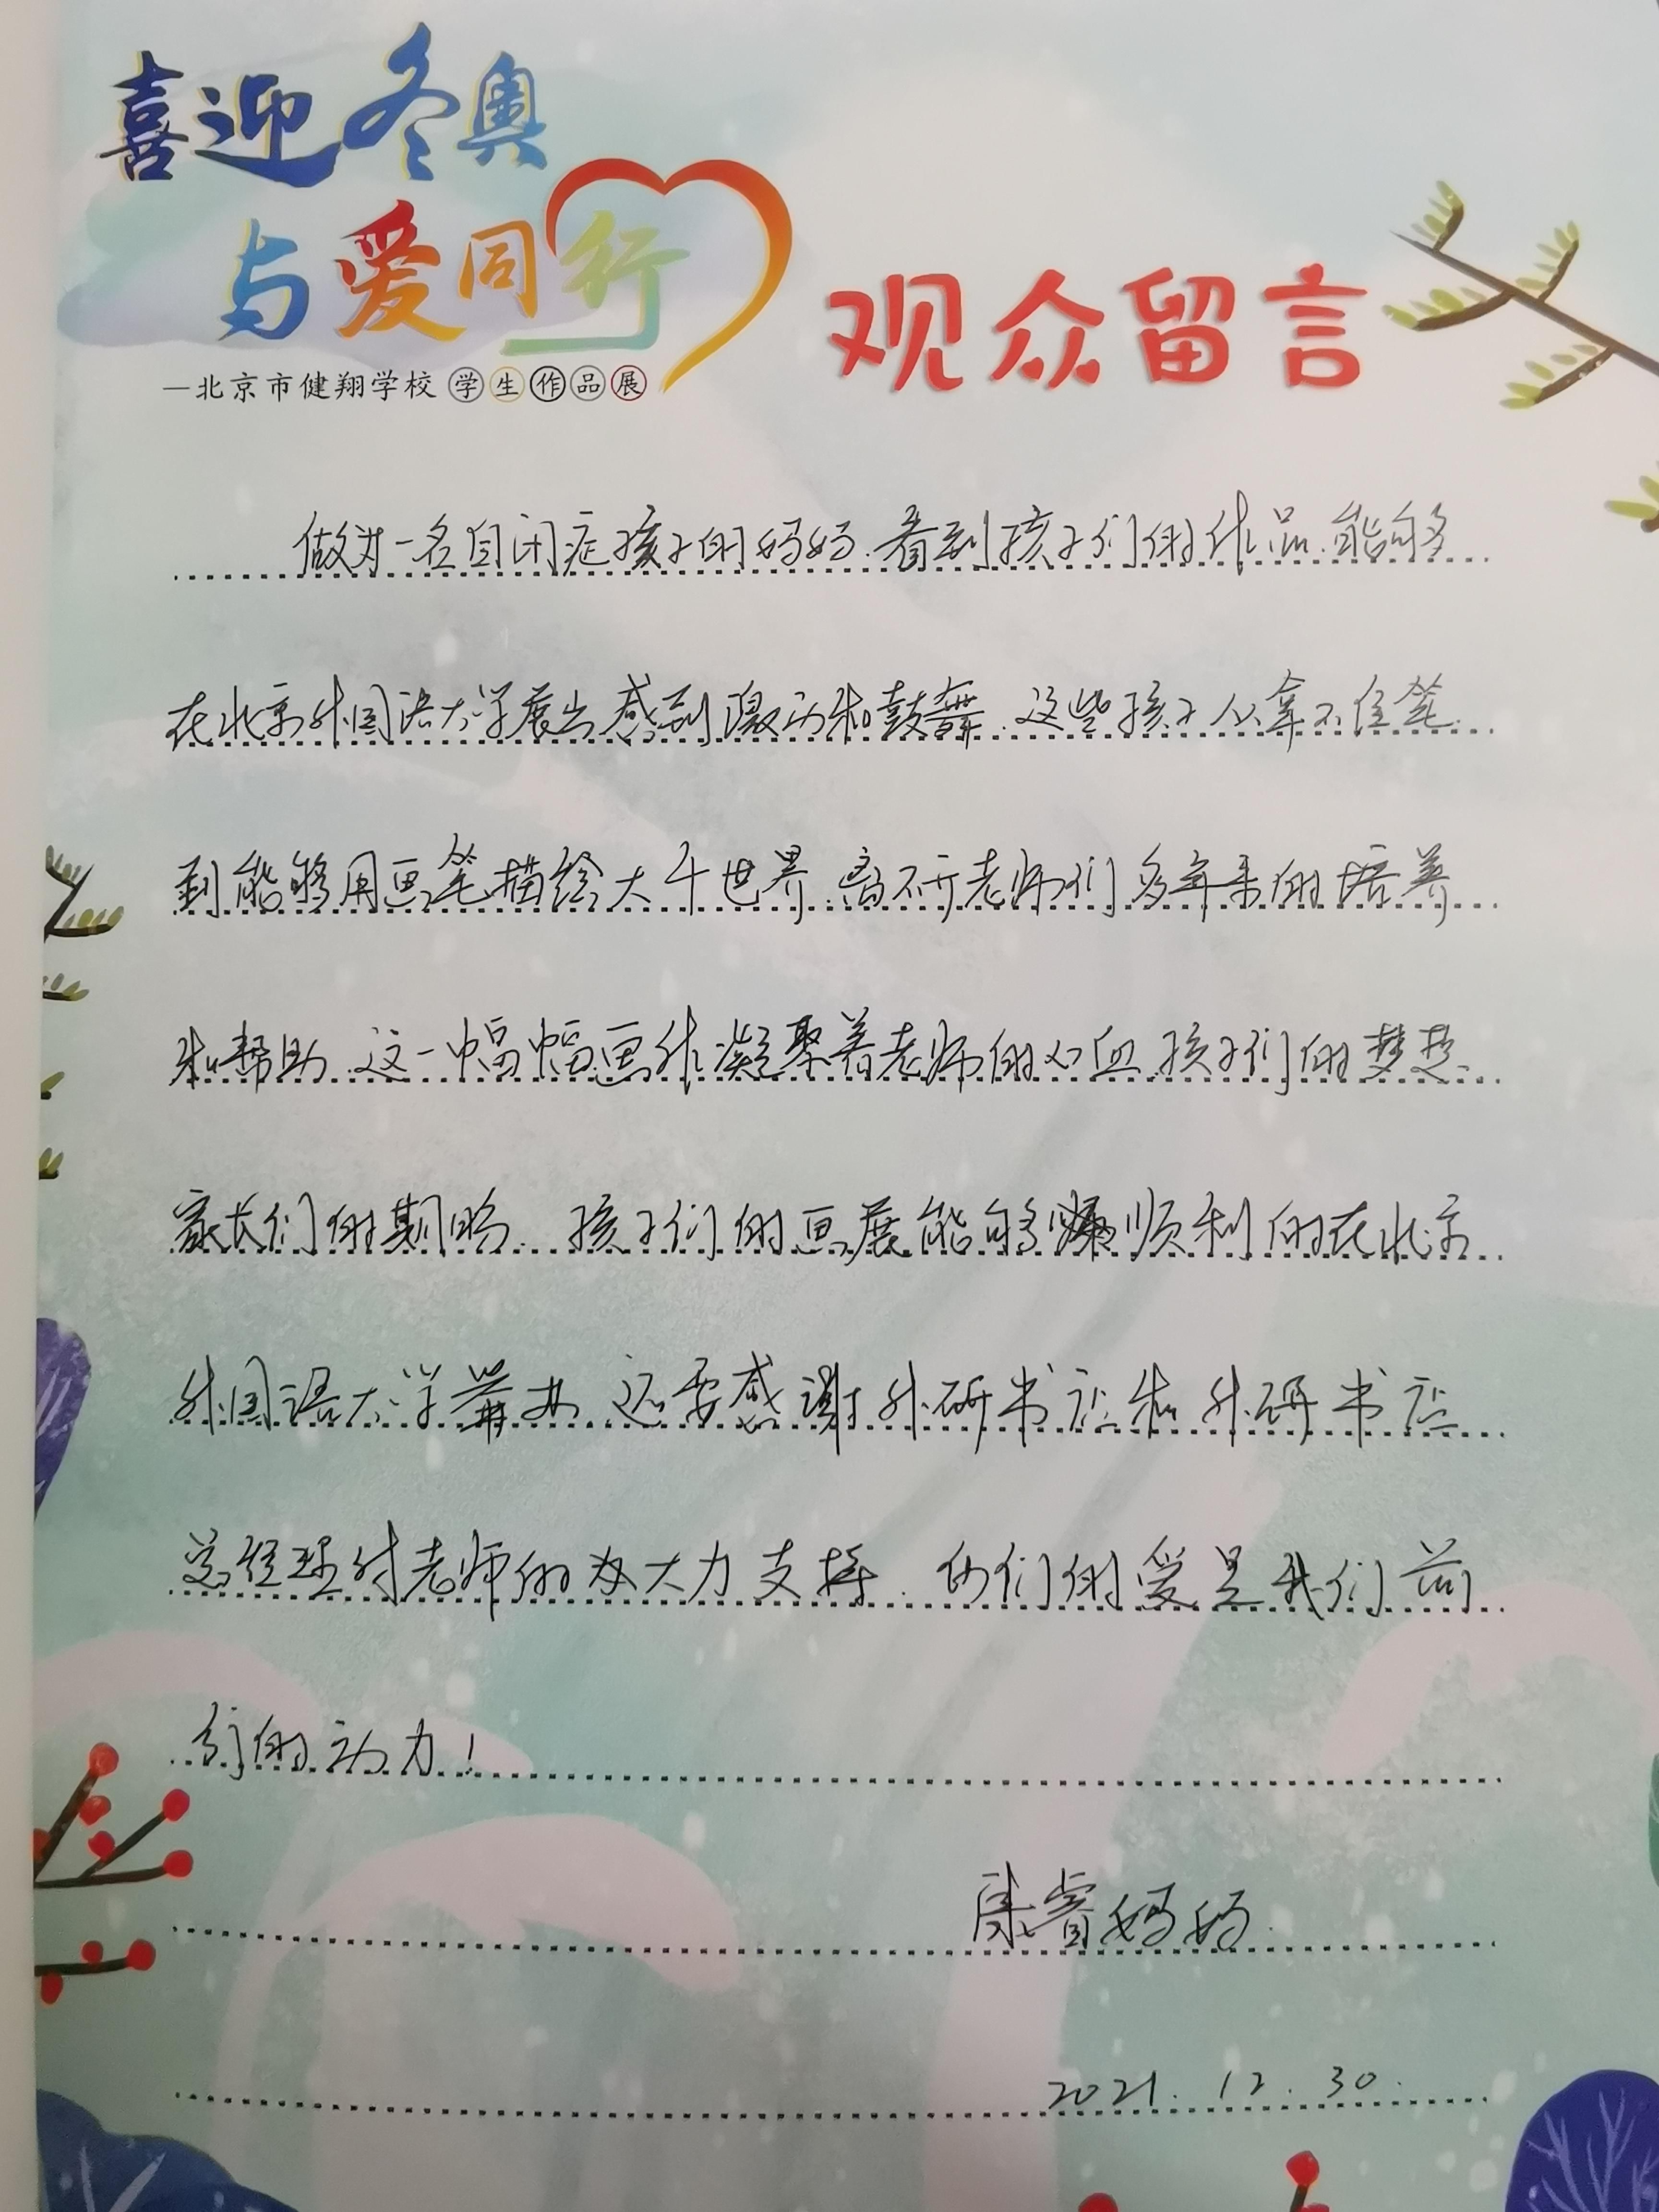 喜迎冬奥
与爱同行
观众留言
—北京市健翔学校学生作品展
做为一名自闭症孩子的妈妈.看到孩子们的作品.能够
在北京外国语大学展出感到激动和鼓舞.这些孩子从拿不住笔.
到能够用画笔描绘大千世界.离不开老师们多年来的培养
和帮助.这一幅幅画作凝聚着老师的心血.孩子们的梦想.
家长们的期盼.孩子们的画展能够顺利的在北京
外国语大学举办.还要感谢外研书店和外研书店
总经理付老师的大力支持.他们的爱是我们前
行的动力!
康睿妈妈.
2021.12.30.